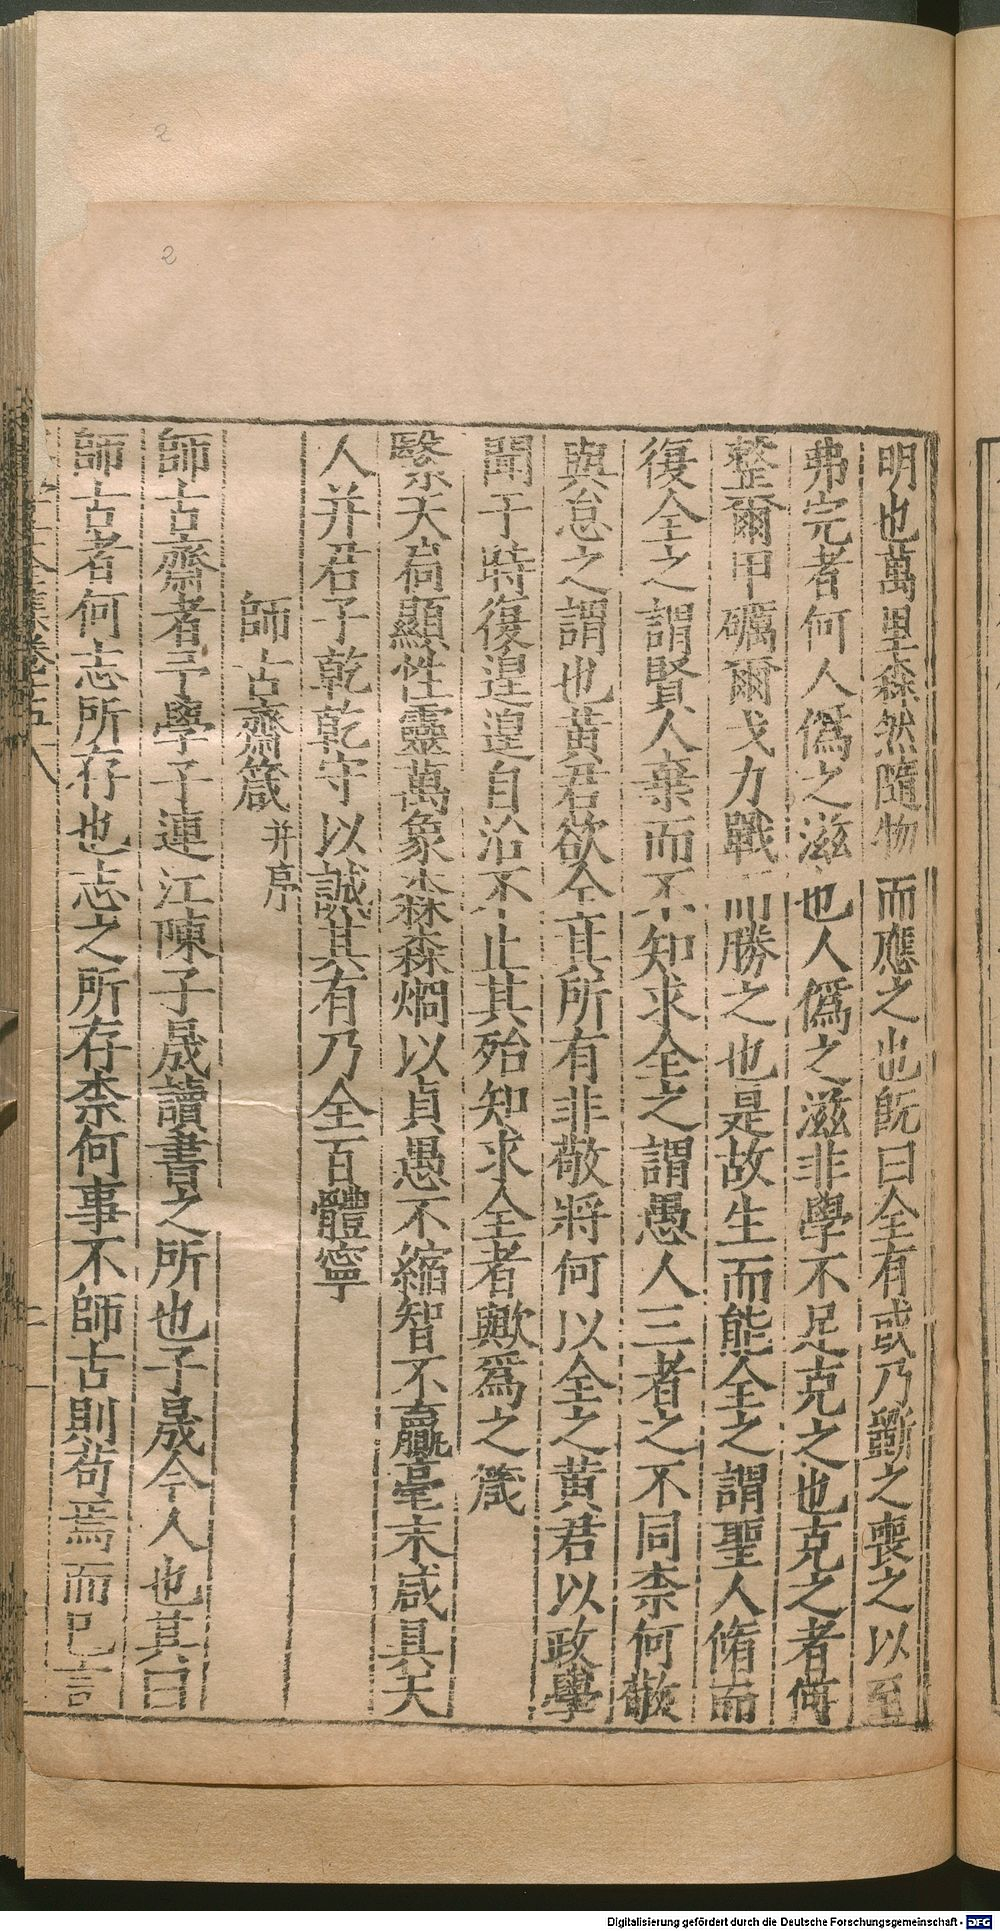 明也萬里森然隨物而應之也旣曰全有或乃斷之喪之以至
弗完者何人僞之滋也人僞之滋非學不足克之也克之者何
整爾甲礪爾戈力戰而勝之也是故生而能全之謂聖人脩而
復全之謂賢人棄而不知求全之謂愚人三者之不同柰何敬
與怠之謂也黃君欲全其所有非敬將何以全之黃君以政學
聞于時復遑遑自治不止其殆知求全者歟爲之箴
繄天尙顯性靈萬象森森炯以貞愚不縮智不贏毫末咸具天
人并君子乾乾守以誠其有乃全百體寧
師古齋箴并序
師古齋者予學子連江陳子晟讀書之所也子晟今人也其曰
師古者何志所存也志之所存柰何事不師古則苟焉而已言
2
2
Digitalisierung gefördert durch die Deutsche Forschungsgemeinschaft - DFG